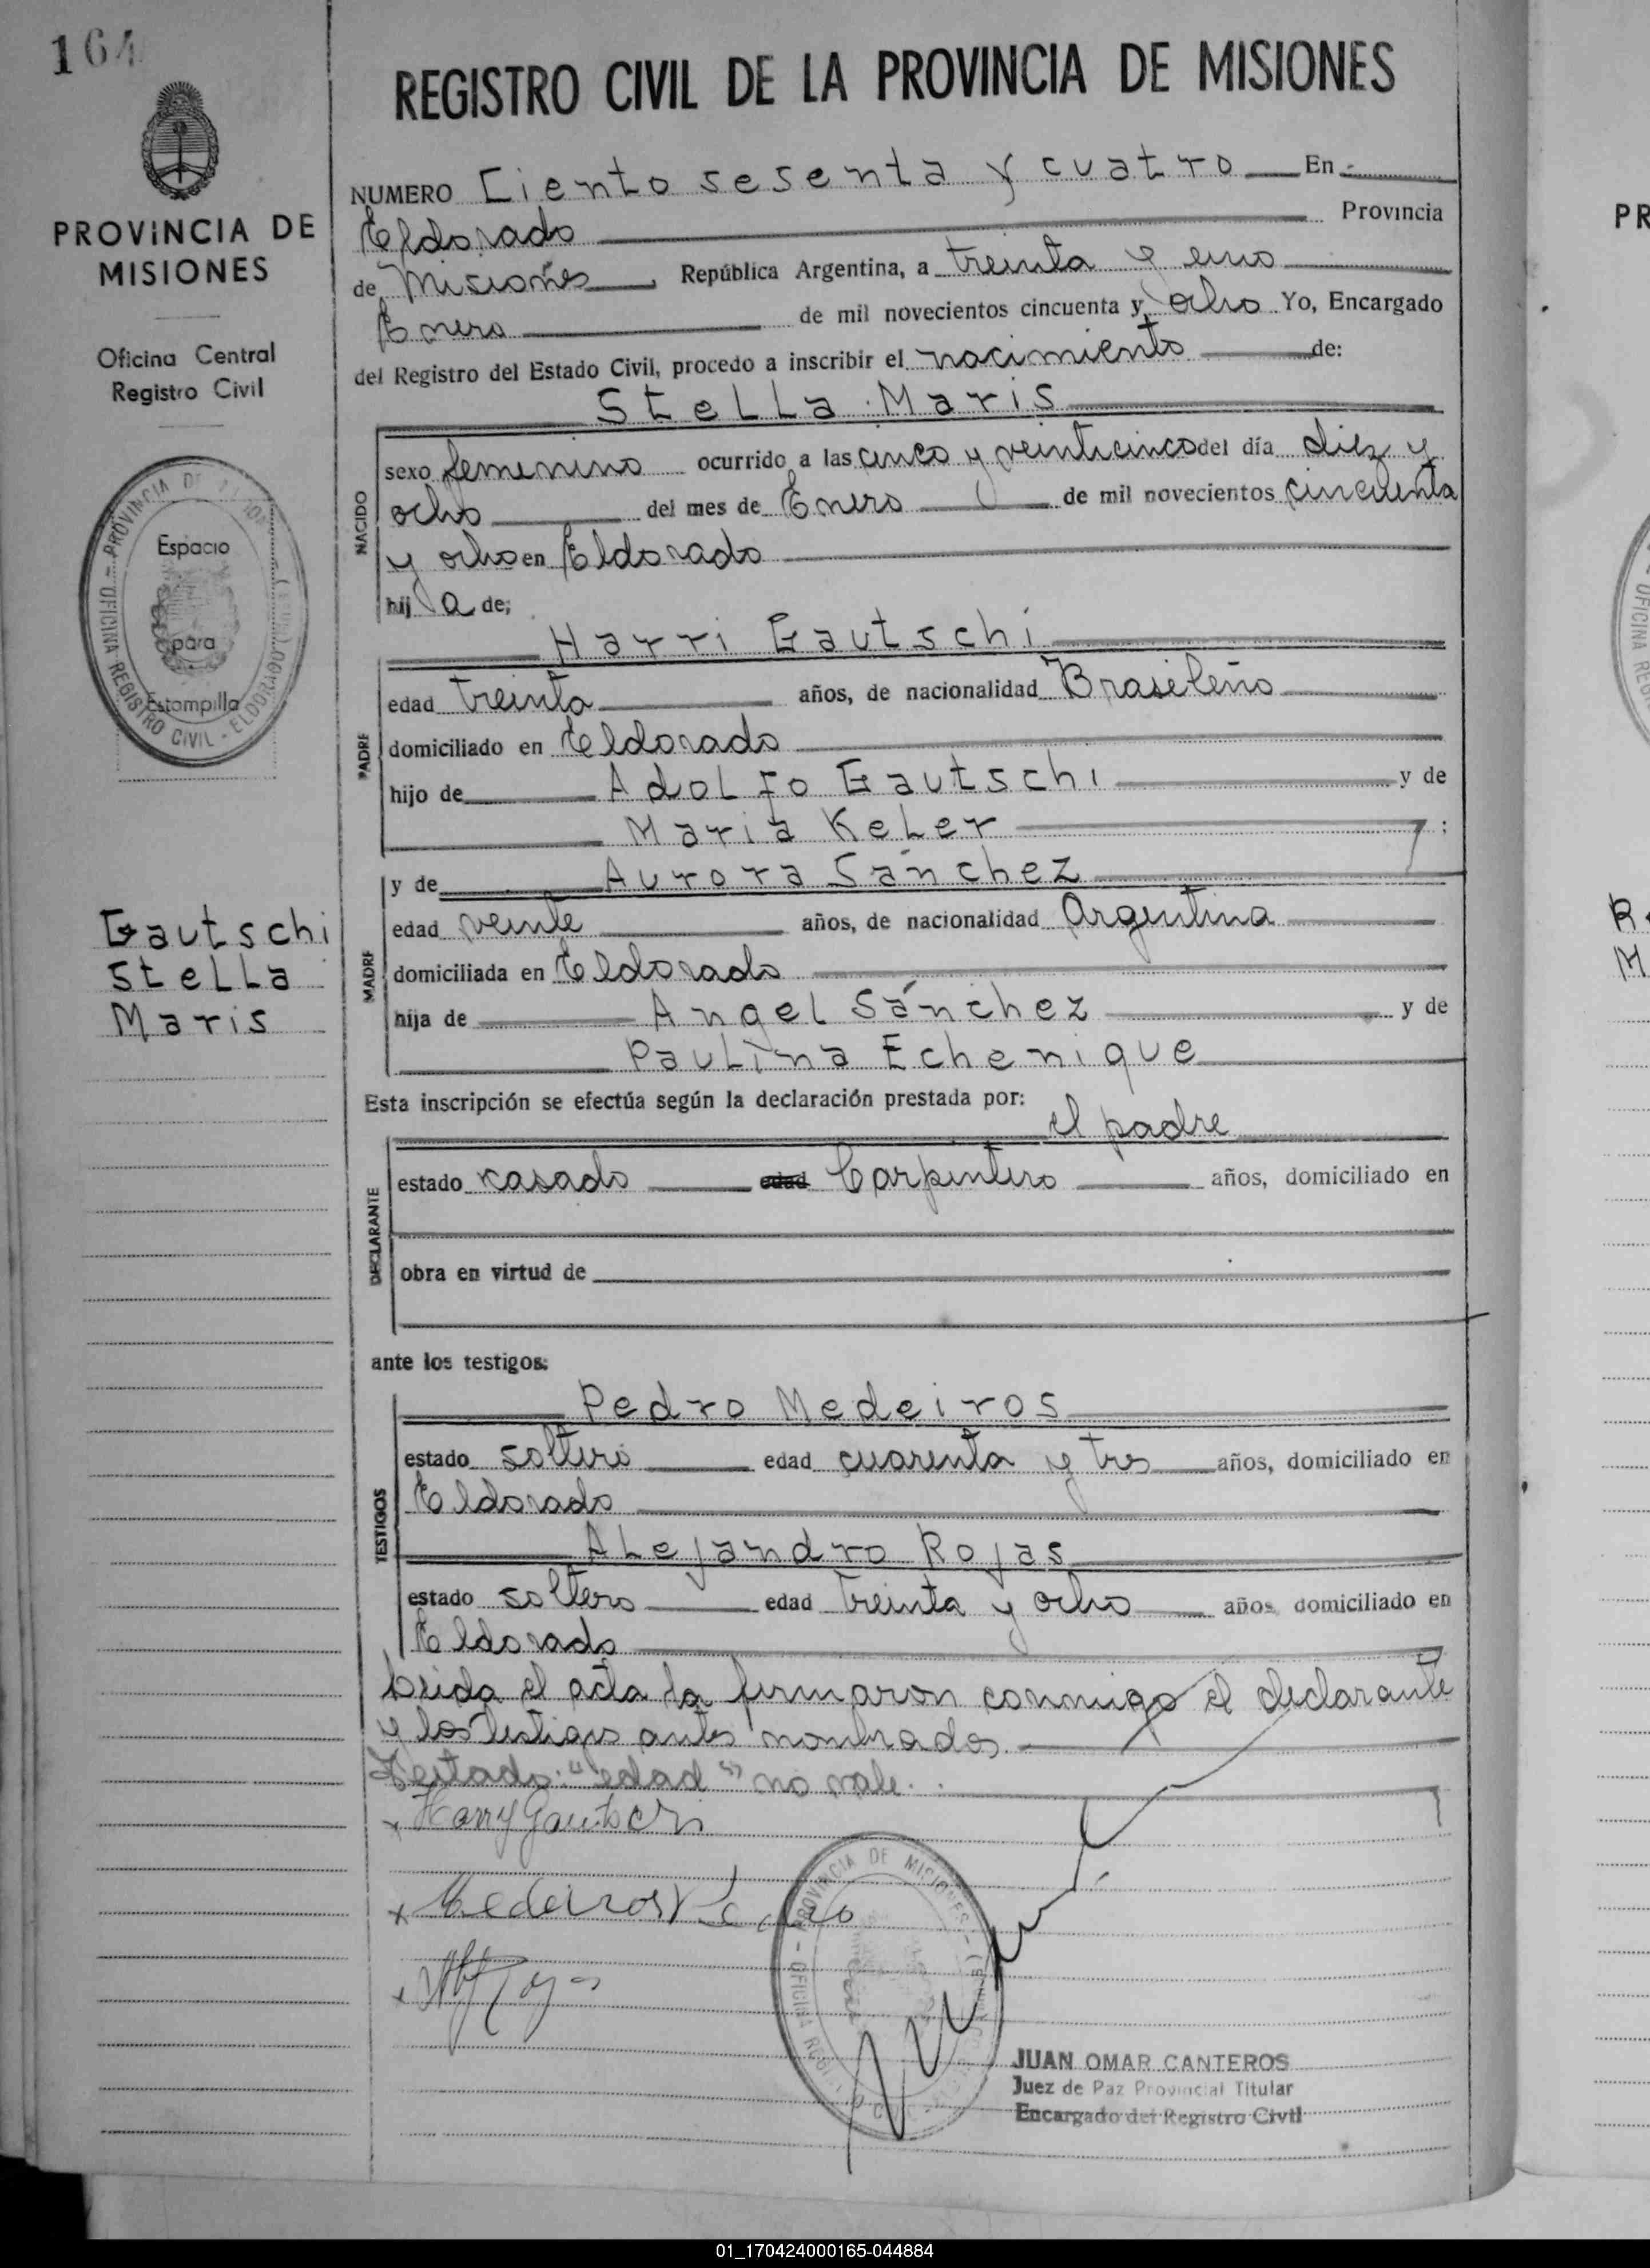 164
REGISTRO CIVIL DE LA PROVINCIA DE MISIONES
PROVINCIA DE
MISIONES
Oficina Central
Registro Civil
PROVINCIA DE
OFICINA REGISTRO CIVIL - ELDORADO
Espacio
para
Estampilla
Gautschi
Stella
Maris
NUMERO Ciento sesenta y cuatro En
Eldorado Provincia
de Misiones, República Argentina, a treinta y uno
Enero de mil novecientos cincuenta y ocho Yo, Encargado
del Registro del Estado Civil, procedo a inscribir el nacimiento de:
Stella Maris
NACIDO
sexo femenino ocurrido a las cinco y veinticinco del día diez y
ocho del mes de Enero de mil novecientos cincuenta
y ocho en Eldorado
hij a de;
Harri Gautschi
PADRE
edad treinta años, de nacionalidad Brasileño
domiciliado en Eldorado
hijo de Adolfo Gautschi y de
Maria Keler ;
y de Aurora Sánchez
MADRE
edad veinte años, de nacionalidad Argentina
domiciliada en Eldorado
hija de Angel Sánchez y de
Paulina Echenique
Esta inscripción se efectúa según la declaración prestada por:
el padre
DECLARANTE
estado casado edad Carpintero años, domiciliado en
obra en virtud de
ante los testigos:
Pedro Medeiros
TESTIGOS
estado soltero edad cuarenta y tres años, domiciliado en
Eldorado
Alejandro Rojas
estado soltero edad treinta y ocho años, domiciliado en
Eldorado
Leida el acta la firmaron conmigo el declarante
y los testigos antes nombrados.
Testado: "edad" no vale.
x Harry Gautschi
x Medeiros Pedro
x
PROVINCIA DE MISIONES
OFICINA
JUAN OMAR CANTEROS
Juez de Paz Provincial Titular
Encargado del Registro Civil
PR
01_170424000165-044884